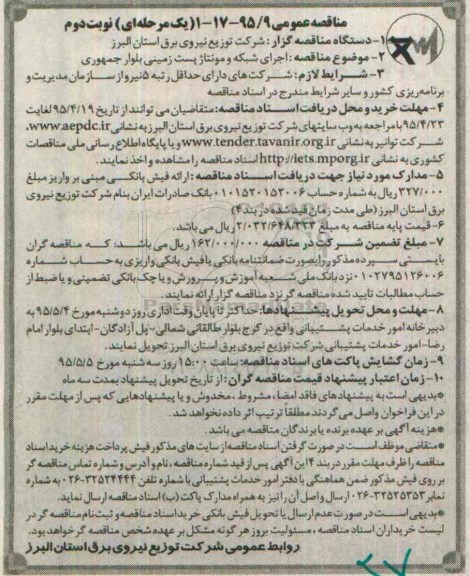 مناقصه عمومی ۹/ ۹۵-۱۷-۱ (یک مرحله ای) نوبت دوم
۱- دستگاه مناقصه گزار: شرکت توزیع نیروی برق استان البرز
۲- موضوع مناقصه: اجرای شبکه و مونتاژ پست زمینی بلوار جمهوری
۳- شرایط لازم: شرکت های دارای حداقل رتبه ۵ نیرو از سازمان مدیریت و
برنامه ریزی کشور و سایر شرایط مندرج در اسناد مناقصه
۴- مهلت خرید و محل دریافت اسناد مناقصه: متقاضیان می توانند از تاریخ ۹۵/۴/۱۹ لغایت
۹۵/۴/۲۳ با مراجعه به وب سایتهای شرکت توزیع نیروی برق استان البرز به نشانی www.aepdc.ir،
شرکت توانیر به نشانی www.tender.tavanir.org.ir و یا پایگاه اطلاع رسانی ملی مناقصات
کشوری به نشانی http://iets.mporg.ir اسناد مناقصه را مشاهده و اخذ نمایند.
۵- مدارک مورد نیاز جهت دریافت اسناد مناقصه: ارائه فیش بانکی مبنی بر واریز مبلغ
۳۲۷/۰۰۰ ریال به شماره حساب ۰۱۰۱۵۲۰۱۵۳۰۰۶ بانک صادرات ایران بنام شرکت توزیع نیروی
برق استان البرز (طی مدت زمان قید شده در بند ۴)
۶- قیمت پایه مناقصه به مبلغ ۲/۰۳۲/۶۴۸/۳۲۳ ریال می باشد.
۷- مبلغ تضمین شرکت در مناقصه ۱۶۲/۰۰۰/۰۰۰ ریال می باشد؛ که مناقصه گران
بایستی سپرده مذکور را بصورت ضمانتنامه بانکی یا فیش بانکی واریزی به حساب شماره
۰۱۰۲۷۹۵۱۲۶۰۰۶ نزد بانک ملی شعبه آموزش و پرورش و یا چک بانکی تضمینی و یا ضبط از
حساب مطالبات تایید شده مناقصه گر نزد مناقصه گزار ارائه نمایند.
۸- مهلت و محل تحویل پیشنهادها: حداکثر تا پایان وقت اداری روز دوشنبه مورخ ۹۵/۵/۴ به
دبیرخانه امور خدمات پشتیبانی واقع در کرج بلوار طالقانی شمالی-پل آزادگان- ابتدای بلوار امام
رضا- امور خدمات پشتیبانی شرکت توزیع نیروی برق استان البرز تحویل نمایند.
۹- زمان گشایش پاکت های اسناد مناقصه: ساعت ۱۵:۰۰ روز سه شنبه مورخ ۹۵/۵/۵
۱۰- زمان اعتبار پیشنهاد قیمت مناقصه گران: از تاریخ تحویل پیشنهاد بمدت سه ماه
*بدیهی است به پیشنهادهای فاقد امضا، مشروط، مخدوش و یا پیشنهادهایی که پس از مهلت مقرر
در این فراخوان واصل می گردند مطلقاً ترتیب اثر داده نخواهد شد.
*هزینه آگهی بر عهده برنده یا برندگان مناقصه می باشد.
*متقاضی موظف است در صورت گرفتن اسناد مناقصه از سایت های مذکور فیش پرداخت هزینه خرید اسناد
مناقصه را ظرف مهلت مقرر در بند ۴ این آگهی پس از قید شماره مناقصه، نام و آدرس و شماره تماس مناقصه گر
بر روی فیش مذکور ضمن هماهنگی با دفتر امور خدمات پشتیبانی با شماره تلفن ۳۲۵۲۴۴۴۴-۰۲۶ به شماره
نمابر ۳۲۵۲۵۳۵۳-۰۲۶ ارسال و اصل آن را نیز به همراه مدارک پاکت (ب) اسناد مناقصه ارسال نماید.
*بدیهی است در صورت عدم ارسال یا تحویل فیش بانکی خرید اسناد مناقصه و ثبت نام مناقصه گر در
لیست خریداران اسناد مناقصه، مسئولیت بروز هر گونه مشکل بر عهده شخص مناقصه گر خواهد بود.
روابط عمومی شرکت توزیع نیروی برق استان البرز
۲۷